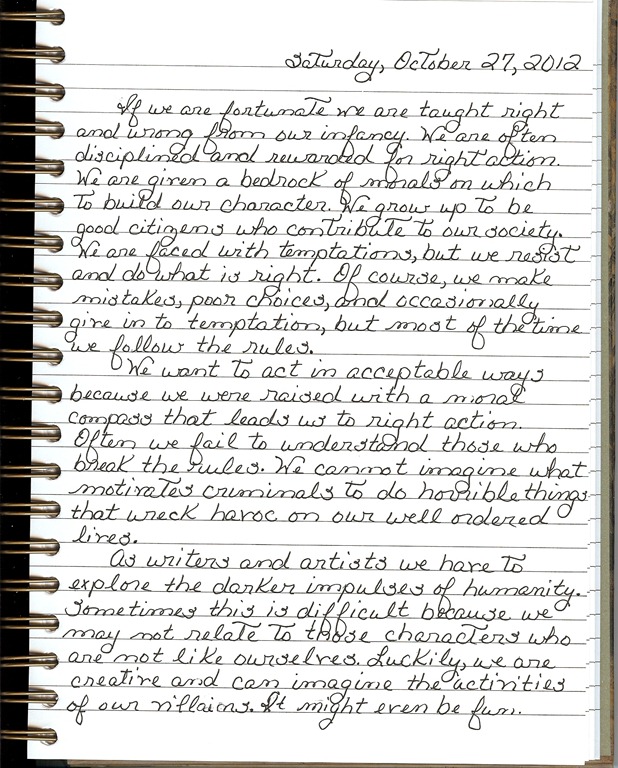 Saturday, October 27, 2012
If we are fortunate we are taught right
and wrong from our infancy. We are often
disciplined and rewarded for right action.
We are given a bedrock of morals on which
to build our character. We grow up to be
good citizens who contribute to our society.
We are faced with temptations, but we resist
and do what is right. Of course, we make
mistakes, poor choices, and occasionally
give in to temptation, but most of the time
we follow the rules.
We want to act in acceptable ways
because we were raised with a moral
compass that leads us to right action.
Often we fail to understand those who
break the rules. We cannot imagine what
motivates criminals to do horrible things
that wreck havoc on our well ordered
lives.
As writers and artists we have to
explore the darker impulses of humanity.
Sometimes this is difficult because we
may not relate to those characters who
are not like ourselves. Luckily, we are
creative and can imagine the activities
of our villains. It might even be fun.